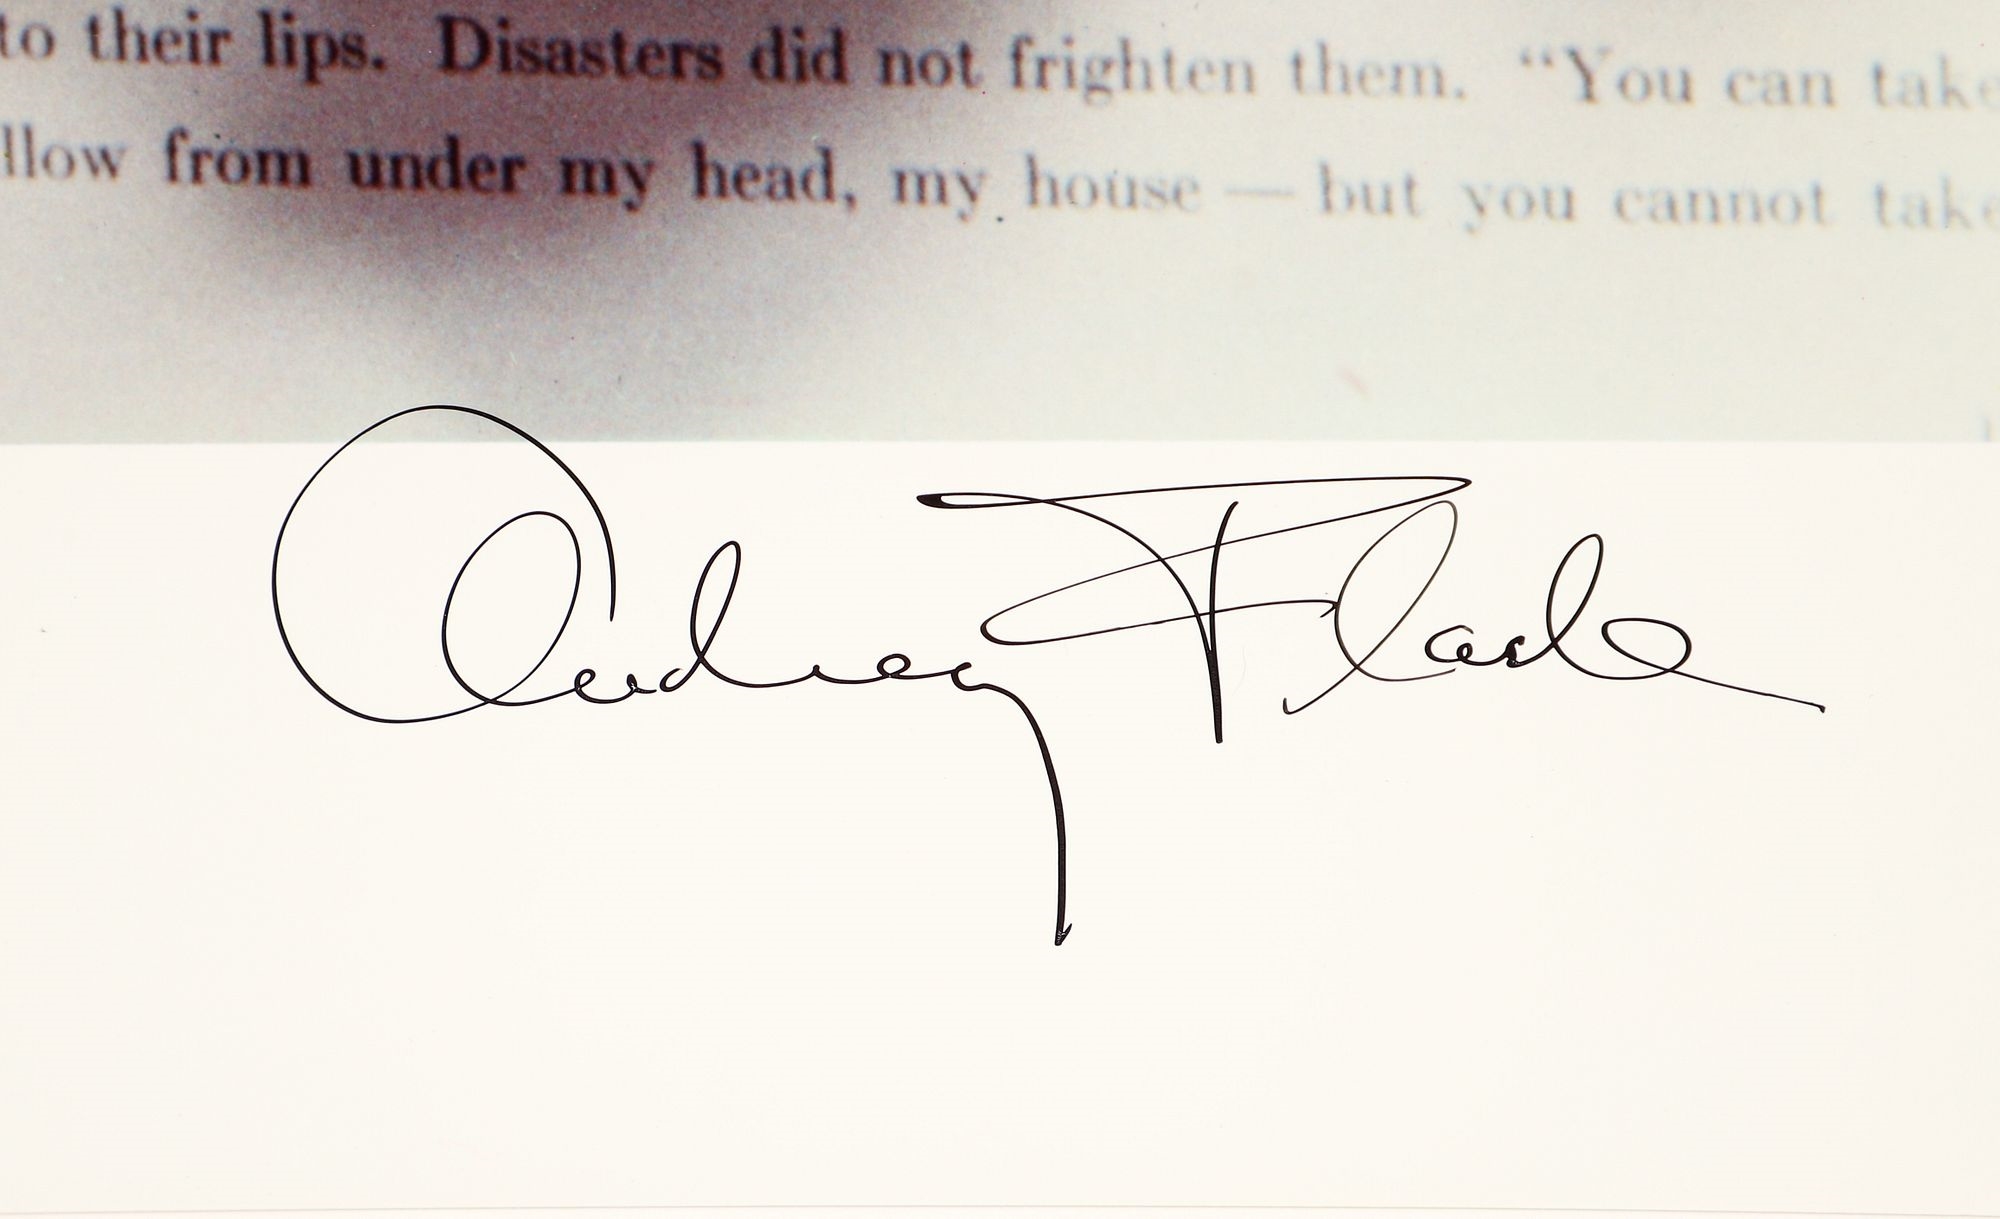 to their lips. Disasters did not frighten them. “You can take
llow from under my head, my house — but you cannot take
Audrey Flack